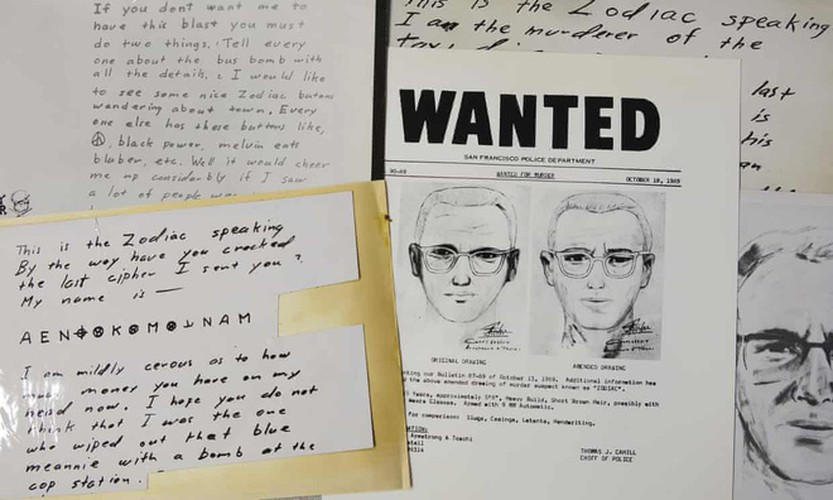 If you dont want me to
have this blast you must
do two things. Tell every
one about the bus bomb with
all the details. 2 I would like
to see some nice Zodiac butons
wandering about town. Every
one else has these buttons like,
☮, black power, melvin eats
bluber, etc. Well it would cheer
me up considerbly if I saw
a lot of people
This is the Zodiac speaking
I am the murderer of the
last
is
his
an
This is the Zodiac speaking
By the way have you cracked
the last cipher I sent you ?
My name is —
A E N ⊕ K M ⊥ N A M
I am mildly cerous as to how
much money you have on my
head now. I hope you do not
think that I was the one
who wiped out that blue
meannie with a bomb at the
cop station.
WANTED
SAN FRANCISCO POLICE DEPARTMENT
WANTED FOR MURDER
OCTOBER 18, 1969
ORIGINAL DRAWING
AMENDED DRAWING
our Bulletin 87-69 of October 13, 1969. Additional information has
the above amended drawing of murder suspect known as "ZODIAC".
Years, approximately 5'8", Heavy Build, Short Brown Hair, possibly with
Glasses. Armed with 9 MM Automatic.
for comparison: Slugs, Casings, Latents, Handwriting.
Armstrong & Toschi
THOMAS J. CAHILL
CHIEF OF POLICE